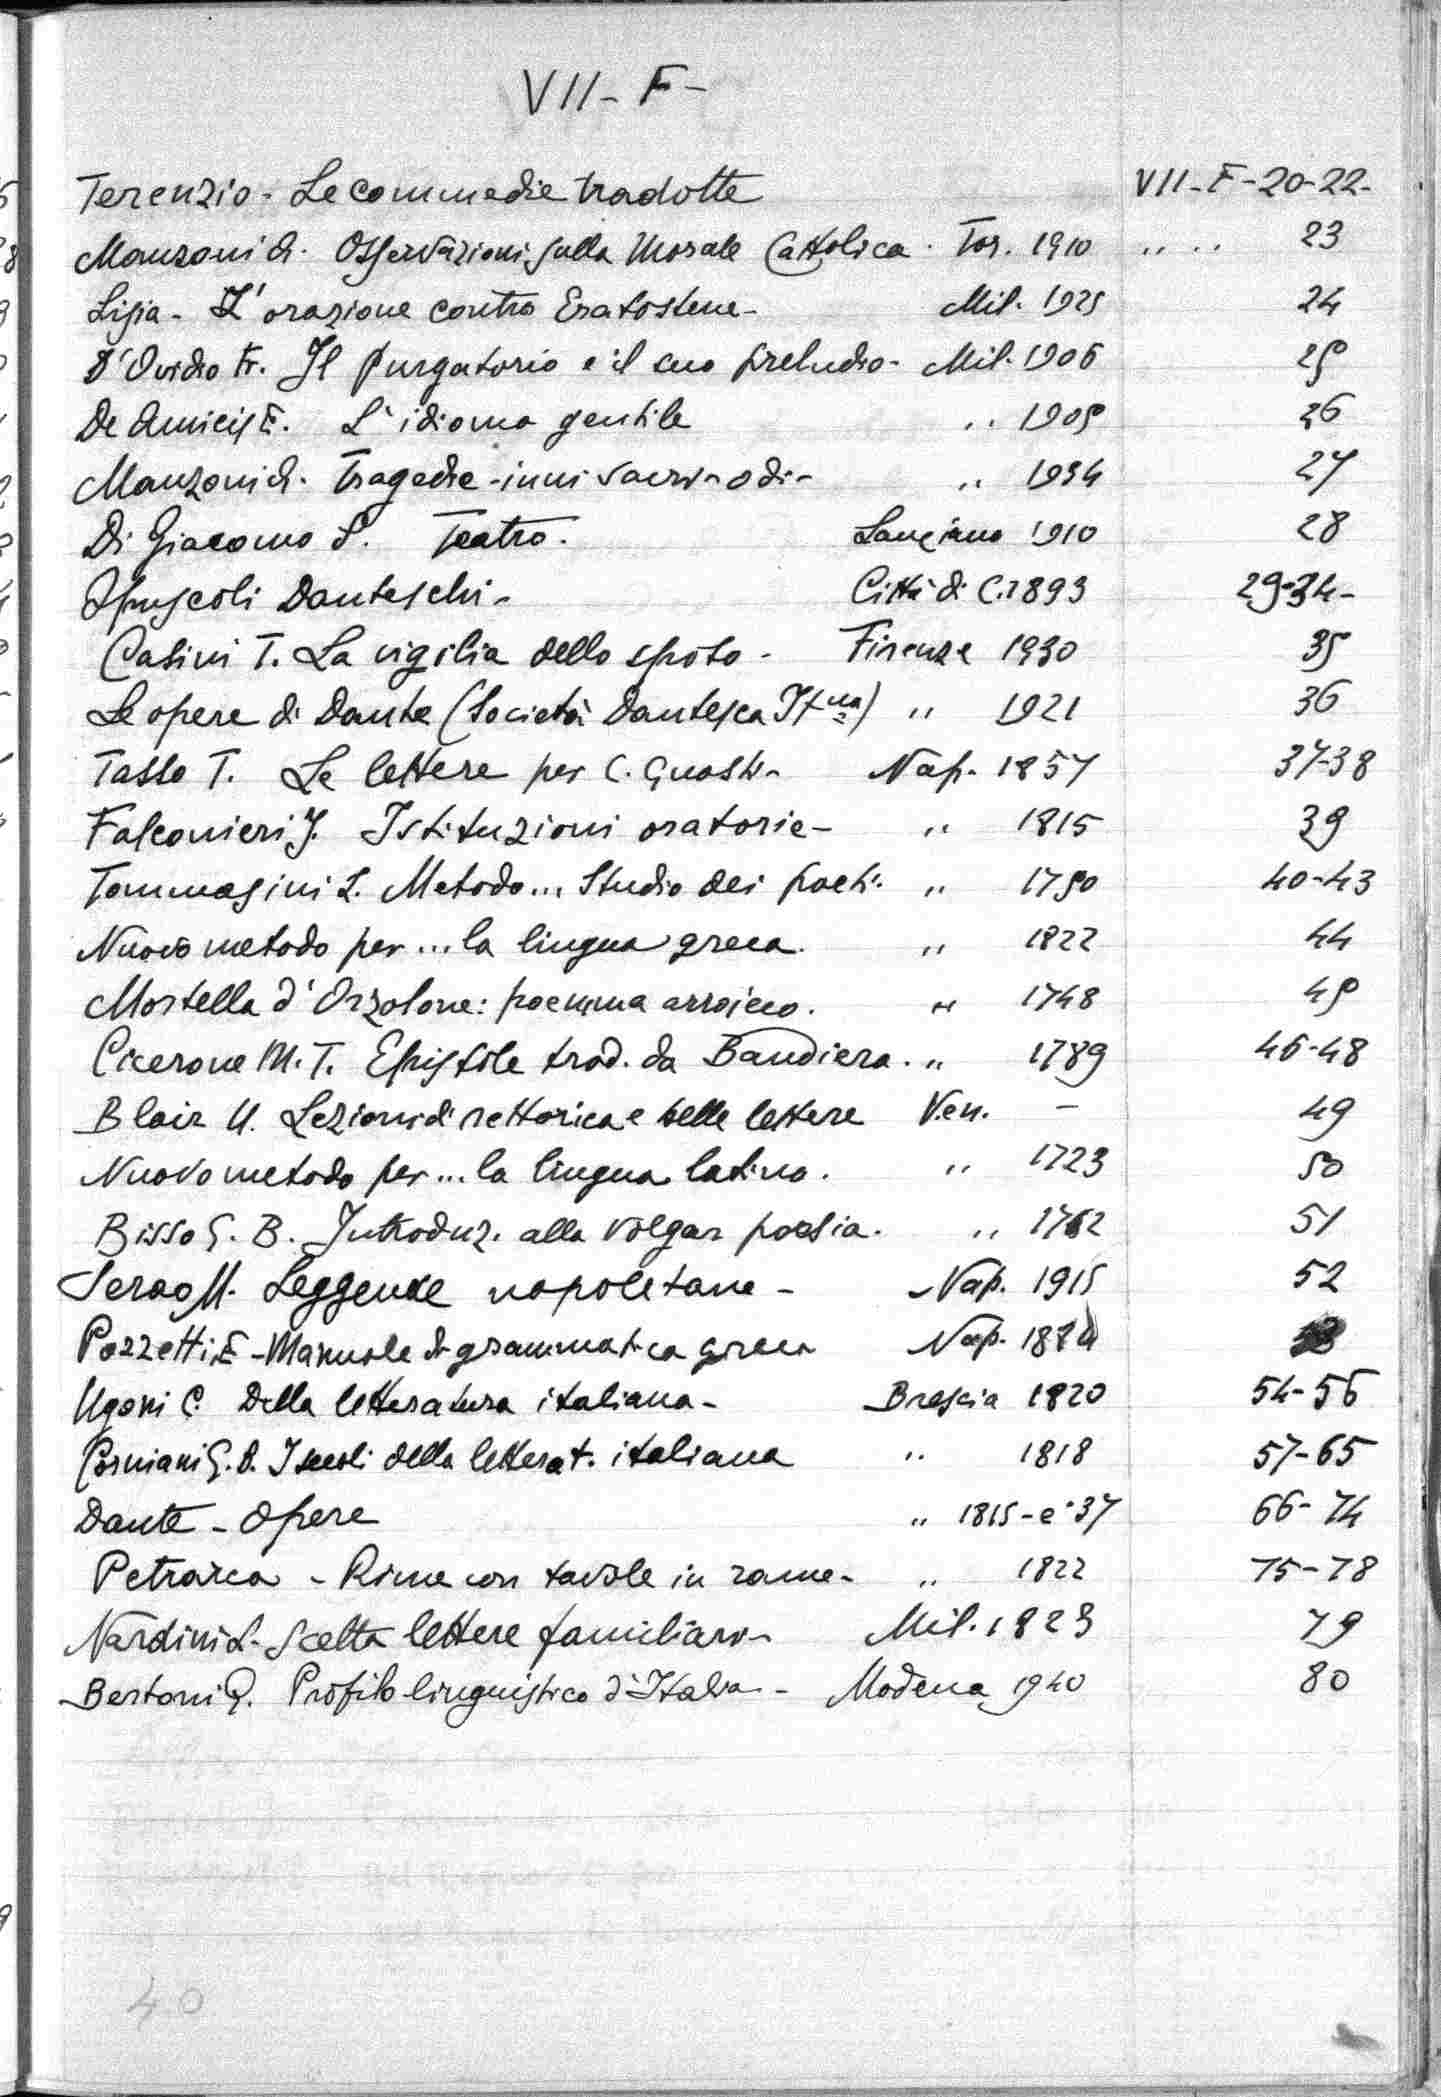 VII - F -
Terenzio - Le commedie tradotte VII - F - 20-22 -
Manzoni A. Osservazioni sulla Morale Cattolica. Tor. 1910 " " 23
Lisia - L'orazione contro Eratostene - Mil. 1925 24
D'Ovidio Fr. Il Purgatorio e il suo preludio - Mil. 1906 25
De Amicis E. L'idioma gentile " 1905 26
Manzoni A. Tragedie - inni sacri - odi - " 1934 27
Di Giacomo S. Teatro. Lanciano 1910 28
Opuscoli Danteschi - Città di C. 1893 29-34 -
Casini T. La vigilia dello sposo - Firenze 1930 35
Le opere di Dante (Società Dantesca It.na) " 1921 36
Tasso T. Le lettere per C. Guasti - Nap. 1857 37-38
Falconieri I. Istituzioni oratorie - " 1815 39
Tommasini L. Metodo... Studio dei poeti. " 1750 40-43
Nuovo metodo per ... la lingua greca. " 1822 44
Mortella d'Orzolone: poemma arroieco. " 1748 45
Cicerone M. T. Epistole trad. da Bandiera. " 1789 46-48
Blair U. Lezioni di rettorica e belle lettere Ven. - 49
Nuovo metodo per ... la lingua latina. " 1723 50
Bisso G. B. Introduz. alla volgar poesia. " 1762 51
Serao M. Leggende napoletane - Nap. 1915 52
Pozzetti E - Manuale di grammatica greca Nap. 53
Ugoni C. Della letteratura italiana - Brescia 1820 54-56
Corniani G. B. I secoli della letterat. italiana " 1818 57-65
Dante - Opere " 1815 - e '37 66-74
Petrarca - Rime con tavole in rame - " 1822 75-78
Nardini L. Scelta lettere familiari - Mil. 1823 79
Bertoni G. Profilo linguistico d'Italia - Modena 1940 80
40